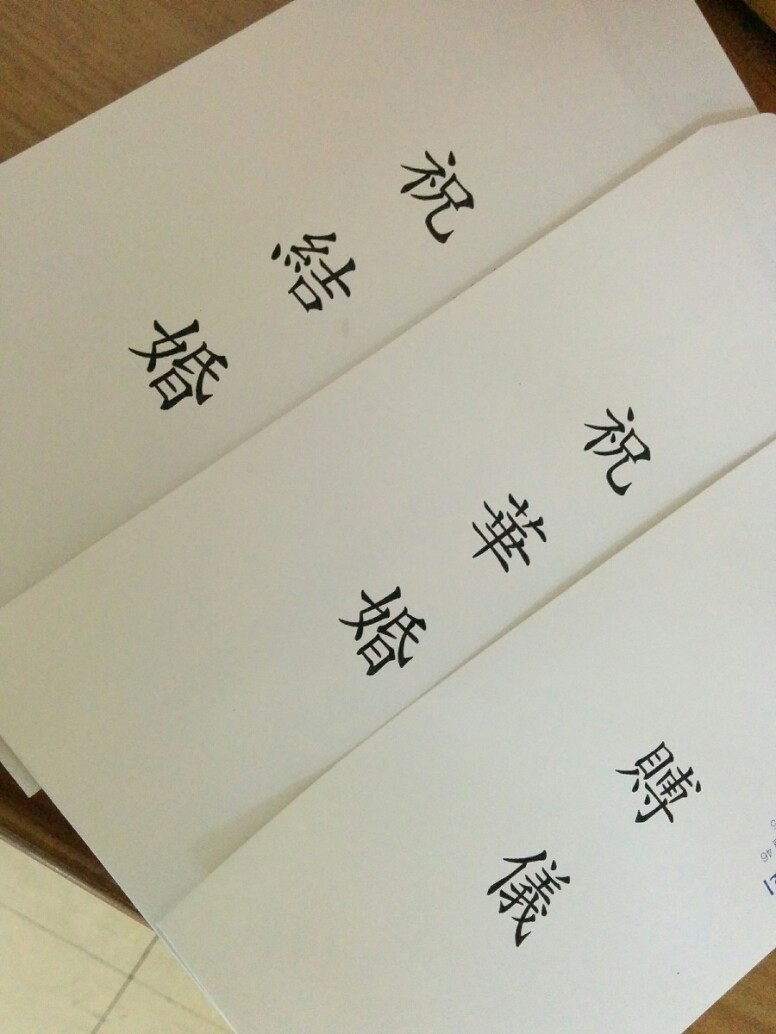 祝結婚
祝華婚
賻儀
46